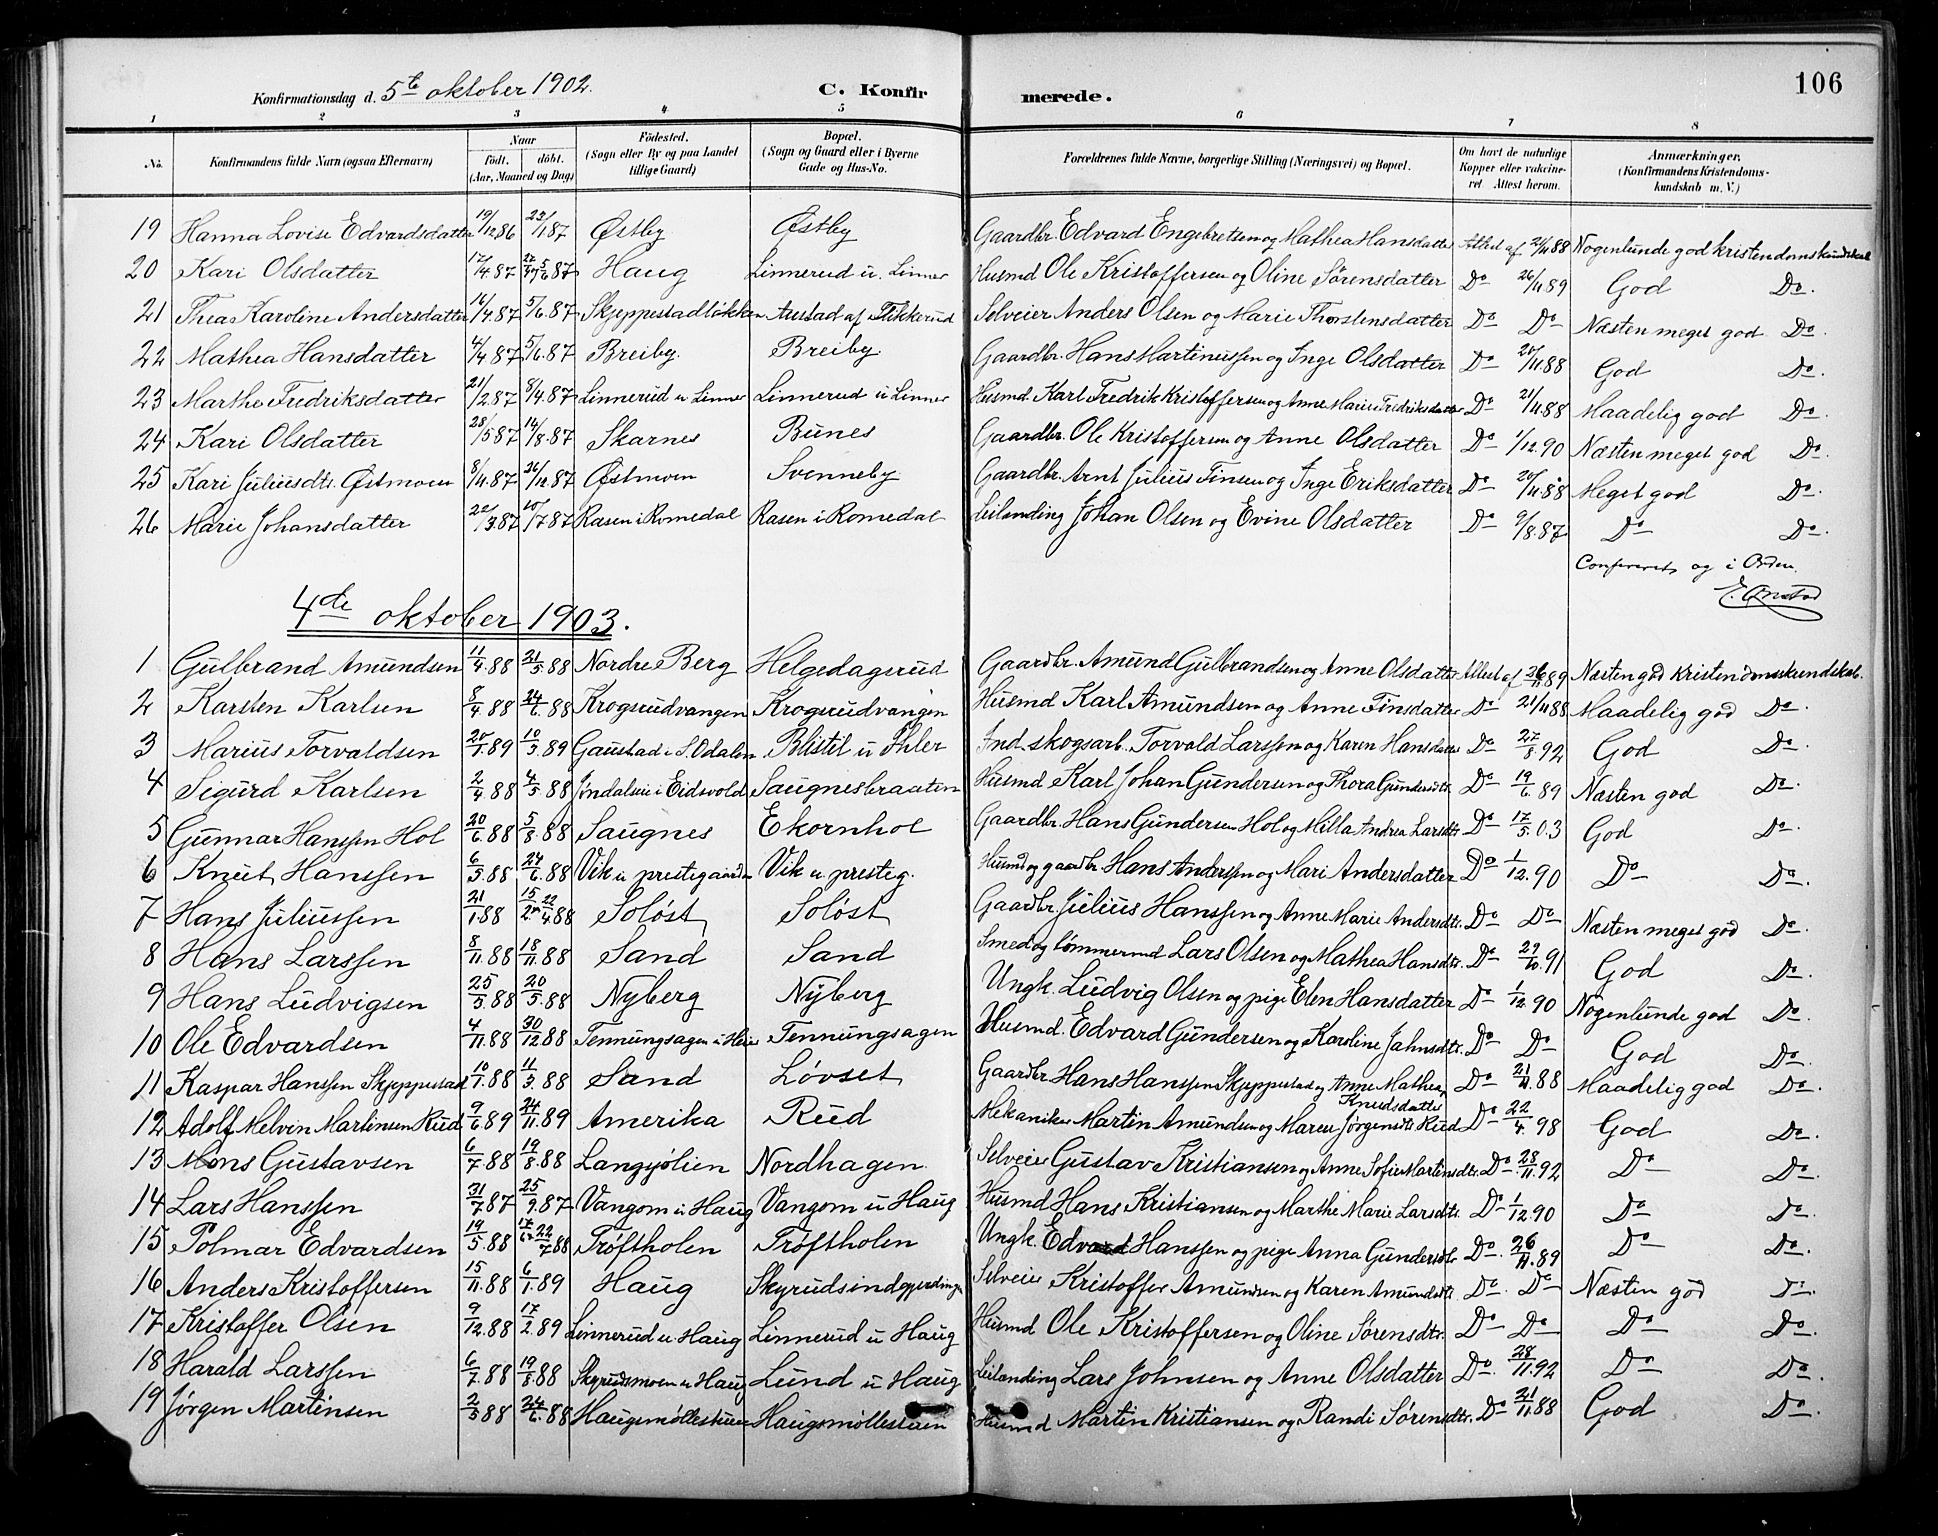 106
Konfirmationsdag d. 5te oktober 1902. C. Konfirmerede.
1 2 3 4 5 6 7 8
No. Konfirmandens fulde Navn (ogsaa Efternavn) Naar födt. döbt. (Aar, Maaned og Dag) Födested. (Sogn eller By og paa Landet tillige Gaard) Bopæl. (Sogn og Gaard eller i Byerne Gade og Hus-No. Forældrenes fulde Navne, borgerlige Stilling (Næringsvei) og Bopæl. Om havt de naturlige Kopper eller vaccineret. Attest herom. Anmærkninger. (Konfirmandens Kristendomskundskab m. V.)
19 Hanna Lovise Edvardsdatter 19/12 86 23/1 87 Østby Østby Gaardbr. Edvard Engebretsen og Mathea Hansdatter Attest af 21/11 88 Nogenlunde god kristendomskundskab
20 Kari Olsdatter 17/4 87 5/6 87 Haug Linnerud u. Linner Husmd Ole Kristoffersen og Oline Sørensdatter Do 26/11 89 God Do.
21 Thea Karoline Andersdatter 16/4 87 5/6 87 Skjeppestadløkken Austad af Flikkerud Selveier Anders Olsen og Marie Thorstensdatter Do Do Næsten meget god Do.
22 Mathea Hansdatter 4/4 87 5/6 87 Breiby Breiby Gaardbr. Hans Martinussen og Inge Olsdatter Do 20/11 88 God Do.
23 Marthe Fredriksdatter 21/2 87 8/4 87 Linnerud u Linner Linnerud u Linner Husmd Karl Fredrik Kristoffersen og Anne Marie Fredriksdatter Do 21/11 88 Maadelig god Do.
24 Kari Olsdatter 28/5 87 14/8 87 Skarnes Bunes Gaardbr. Ole Kristoffersen og Anne Olsdatter Do 1/12 90 Næsten meget god Do.
25 Kari Juliusdtr. Østmoen 8/11 87 26/12 87 Østmoen Svenneby Gaardbr. Arnt Julius Finsen og Inge Eriksdatter Do 20/11 88 Meget god Do.
26 Marie Johansdatter 22/3 87 10/7 87 Rasen i Romedal Rasen i Romedal Leilending Johan Olsen og Evine Olsdatter Do 9/8 87 Do Do.
Confereret og i Orden.
4de oktober 1903.
1 Gulbrand Amundsen 11/4 88 21/5 88 Nordre Berg Helgedagsrud Gaardbr. Amund Gulbrandsen og Anne Olsdatter Attest af 26/11 89 Næsten god Kristendomskundskab.
2 Karsten Karlsen 8/4 88 24/6 88 Krogsrudvangen Krogsrudvangen Husmd Karl Amundsen og Anne Finsdatter Do 21/11 88 Maadelig god Do.
3 Marius Torvaldsen 20/1 89 10/3 89 Gaustad i S. Odalen Blistil u Ihler Ind. skogsarb. Torvald Larssen og Karen Hansdatter Do 27/8 92 God Do.
4 Sigurd Karlsen 2/4 88 4/5 88 i Eidsvold Saugnesbraaten Husmd Karl Johan Gundersen og Thora Gundersdtr. Do 19/6 89 Næsten god Do.
5 Gunnar Hanssen Hol 20/6 88 5/8 88 Saugnes Ekornhol Gaardbr. Hans Gundersen Hol og Milla Andrea Larsdtr. Do 17/5 03 God Do.
6 Knut Hanssen 6/5 88 24/6 88 Vik u prestegaarden Vik u presteg. Husmd og gaardbr. Hans Anderssen og Mari Andersdatter Do 1/12 90 Do Do.
7 Hans Juliussen 21/1 88 15/2 22/4 88 Soløst Soløst Gaardbr. Julius Hanssen og Anne Marie Andersdtr. Do Do Næsten meget god Do.
8 Hans Larssen 8/11 88 18/11 88 Sand Sand Smed og tømmermd Lars Olsen og Mathea Hansdtr. Do 29/10 91 God Do.
9 Hans Ludvigsen 25/3 88 20/5 88 Nyberg Nyberg Ungk. Ludvig Olsen og pige Elen Hansdatter Do 1/12 90 Nogenlunde god Do.
10 Ole Edvardsen 4/11 88 30/12 88 Tennungsagen Tennungsagen Husmd. Edvard Gundersen og Karoline Jahnsdtr. Do Do God Do.
11 Kaspar Hanssen Skjeppestad 10/1 88 11/3 88 Sand Løvset Gaardbr Hans Hanssen Skjeppestad og Anne Mathea Knudsdatter Do 21/11 88 Maadelig god Do.
12 Adolf Melvin Martinsen Rud 9/6 89 24/11 89 Amerika Rud Mekaniker Martin Amundsen og Maren Jørgensdtr Rud Do 22/4 98 God Do.
13 Mons Gustavsen 6/7 88 19/8 88 Langjølien Nordhagen Selveier Gustav Kristiansen og Anne Sofie Martinsdtr. Do 28/11 92 Do Do.
14 Lars Hanssen 31/7 87 25/9 87 Vangom u Haug Vangom u Haug Husmd Hans Kristiansen og Marthe Marie Larsdtr. Do 1/12 90 Do Do.
15 Polmar Edvardsen 19/5 88 17/6 22/7 88 Trøftholen Trøftholen Ungk. Edvard Hanssen og pige Anna Gundersdtr. Do 26/11 89 Do Do.
16 Anders Kristoffersen 15/11 88 6/1 89 Haug Selveier Kristoffer Amundsen og Karen Amundsdtr. Do. Do Næsten god Do.
17 Kristoffer Olsen 9/12 88 17/2 89 Linnerud u. Haug Linnerud u Haug Husmd Ole Kristoffersen og Oline Sørensdtr. Do Do Do Do.
18 Harald Larssen 6/7 88 19/8 88 Skyrudsmoen u Haug Lund u Haug Leilending Lars Johnsen og Anne Olsdatter Do 28/11 92 Do Do.
19 Jørgen Martinsen 2/5 88 24/6 88 Haugsmøllestuen Haugsmøllestuen Husmd Martin Kristiansen og Randi Sørensdtr. Do 21/11 88 God Do.